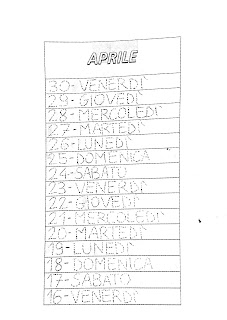 APRILE
30-VENERDÌ
29-GIOVEDÌ
28-MERCOLEDÌ
27-MARTEDÌ
26-LUNEDÌ
25-DOMENICA
24-SABATO
23-VENERDÌ
22-GIOVEDÌ
21-MERCOLEDÌ
20-MARTEDÌ
19-LUNEDÌ
18-DOMENICA
17-SABATO
16-VENERDÌ